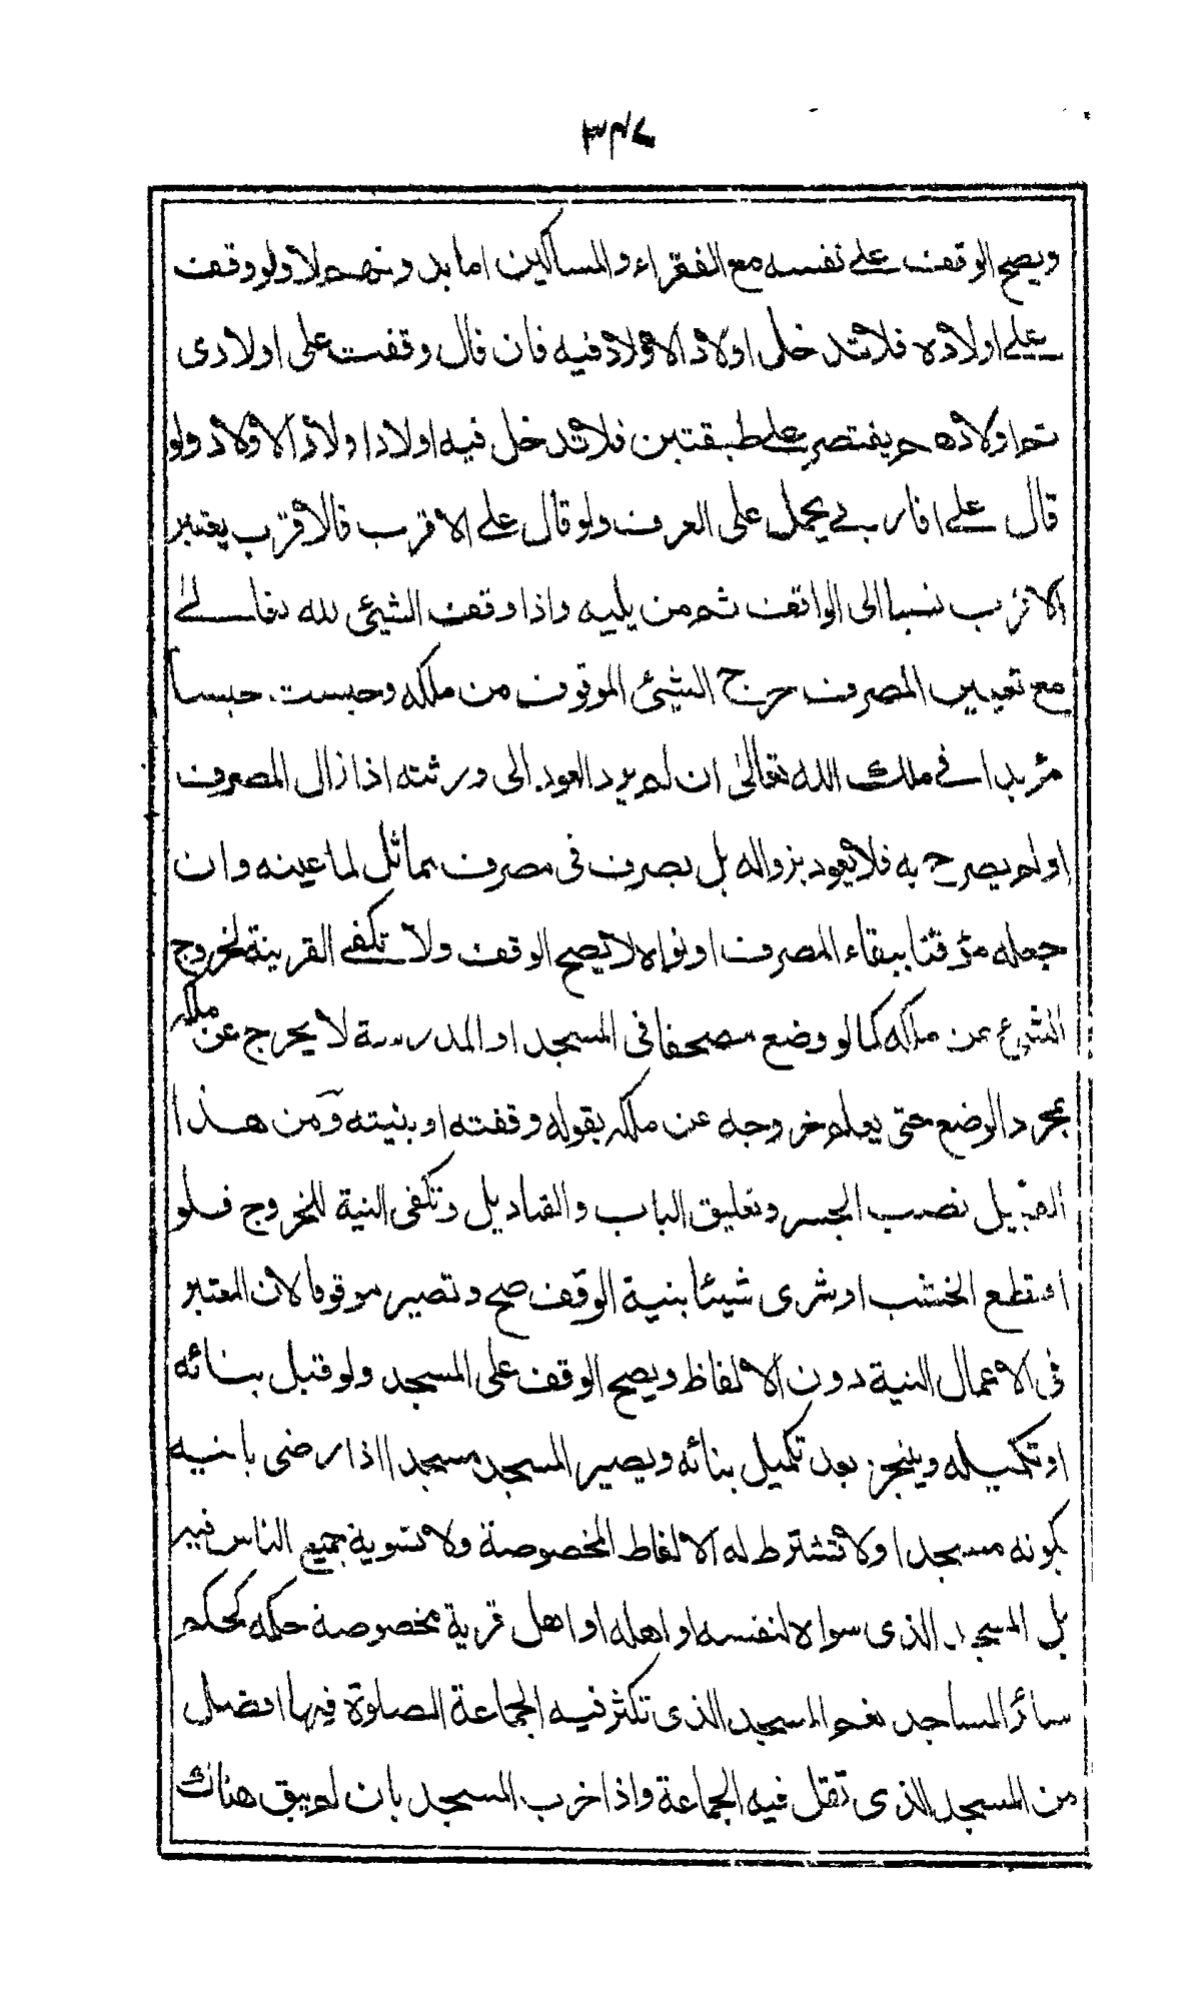 ٣٤٧
ويصح الوقف على نفسه مع الفقراء والمساكين اما بدونهم لا ولو وقف
على اولاده فلا تدخل اولاد الاولاد فيه فان قال وقفت على اولادى
ثم اولادهم يقتصر على طبقتين فلا تدخل فيه اولاد اولاد الاولاد ولو
قال على اقاربى يحمل على العرف ولو قال على الاقرب فالاقرب يعتبر
الاقرب نسبا الى الواقف ثم من يليه واذا وقف الشيئ لله تعالى
مع تعيين المصرف خرج الشيئ الموقوف من ملكه وحبست حبسا
مؤبدا فى ملك الله تعالى ان لم يرد العود الى ورثته اذا زال المصرف
اولم يصرح به فلا يعود بزواله بل يصرف فى مصرف يماثل لما عينه وان
جعله مؤقتا ببقاء المصرف او نواه لا يصح الوقف ولا تكفى القرينة لخروج
الشئ عن ملكه كما لو وضع مصحفا فى المسجد او المدرسة لا يخرج عن ملكه
بمجرد الوضع حتى يعلم خروجه عن ملكه بقوله وقفته او بنيته ومن هذا
القبيل نصب الجسر وتعليق الباب والقناديل وتكفى النية للخروج فلو
اقتطع الخشب او شرى شيئا بنية الوقف صح وتصير موقوفا لان المعتبر
فى الاعمال النية دون الالفاظ ويصح الوقف على المسجد ولو قبل بنائه
او تكميله وينجز بعد تكميل بنائه ويصير المسجد مسجدا اذا رضى بانيه
بكونه مسجدا ولا تشترط له الالفاظ المخصوصة ولا تسوية جميع الناس فيه
بل المسجد الذى سواه لنفسه او اهله او اهل قرية مخصوصة حكمه كحكم
سائر المساجد نعم المسجد الذى تكثر فيه الجماعة الصلوة فيها افضل
من المسجد الذى تقل فيه الجماعة واذا خرب المسجد بان لم يبق هناك